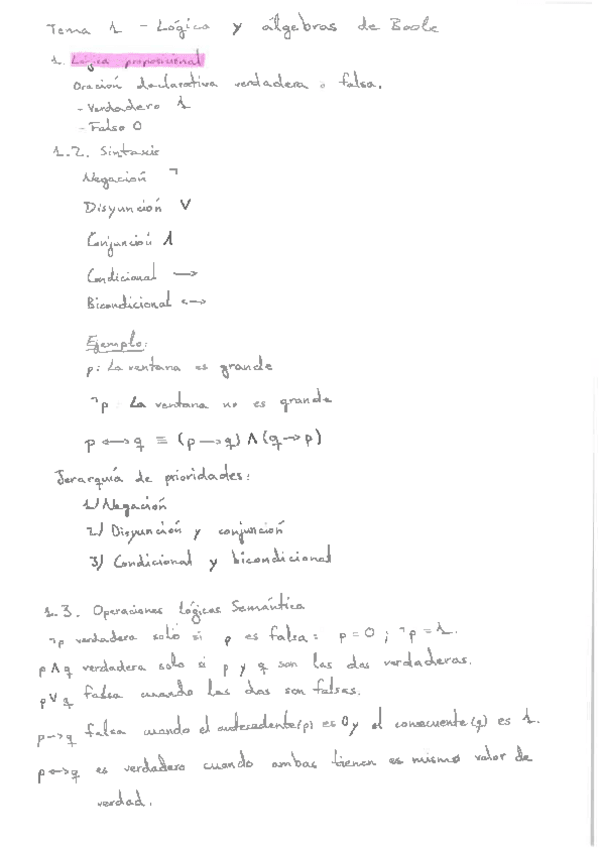 Tema 1 - Lógica y álgebras de Boole
1. Lógica proposicional
Oración declarativa verdadera o falsa.
- Verdadero 1
- Falso 0
1.2. Sintaxis
Negación ¬
Disyunción ∨
Conjunción ∧
Condicional →
Bicondicional ↔
Ejemplo:
p: La ventana es grande
¬p La ventana no es grande
p ↔ q ≡ (p → q) ∧ (q → p)
Jerarquía de prioridades:
1) Negación
2) Disyunción y conjunción
3) Condicional y bicondicional
1.3. Operaciones lógicas Semántica
¬p verdadera solo si p es falsa: p = 0 ; ¬p = 1.
p ∧ q verdadera solo si p y q son las dos verdaderas.
p ∨ q falsa cuando las dos son falsas.
p → q falsa cuando el antecedente (p) es 0 y el consecuente (q) es 1.
p ↔ q es verdadero cuando ambas tienen es mismo valor de
verdad.